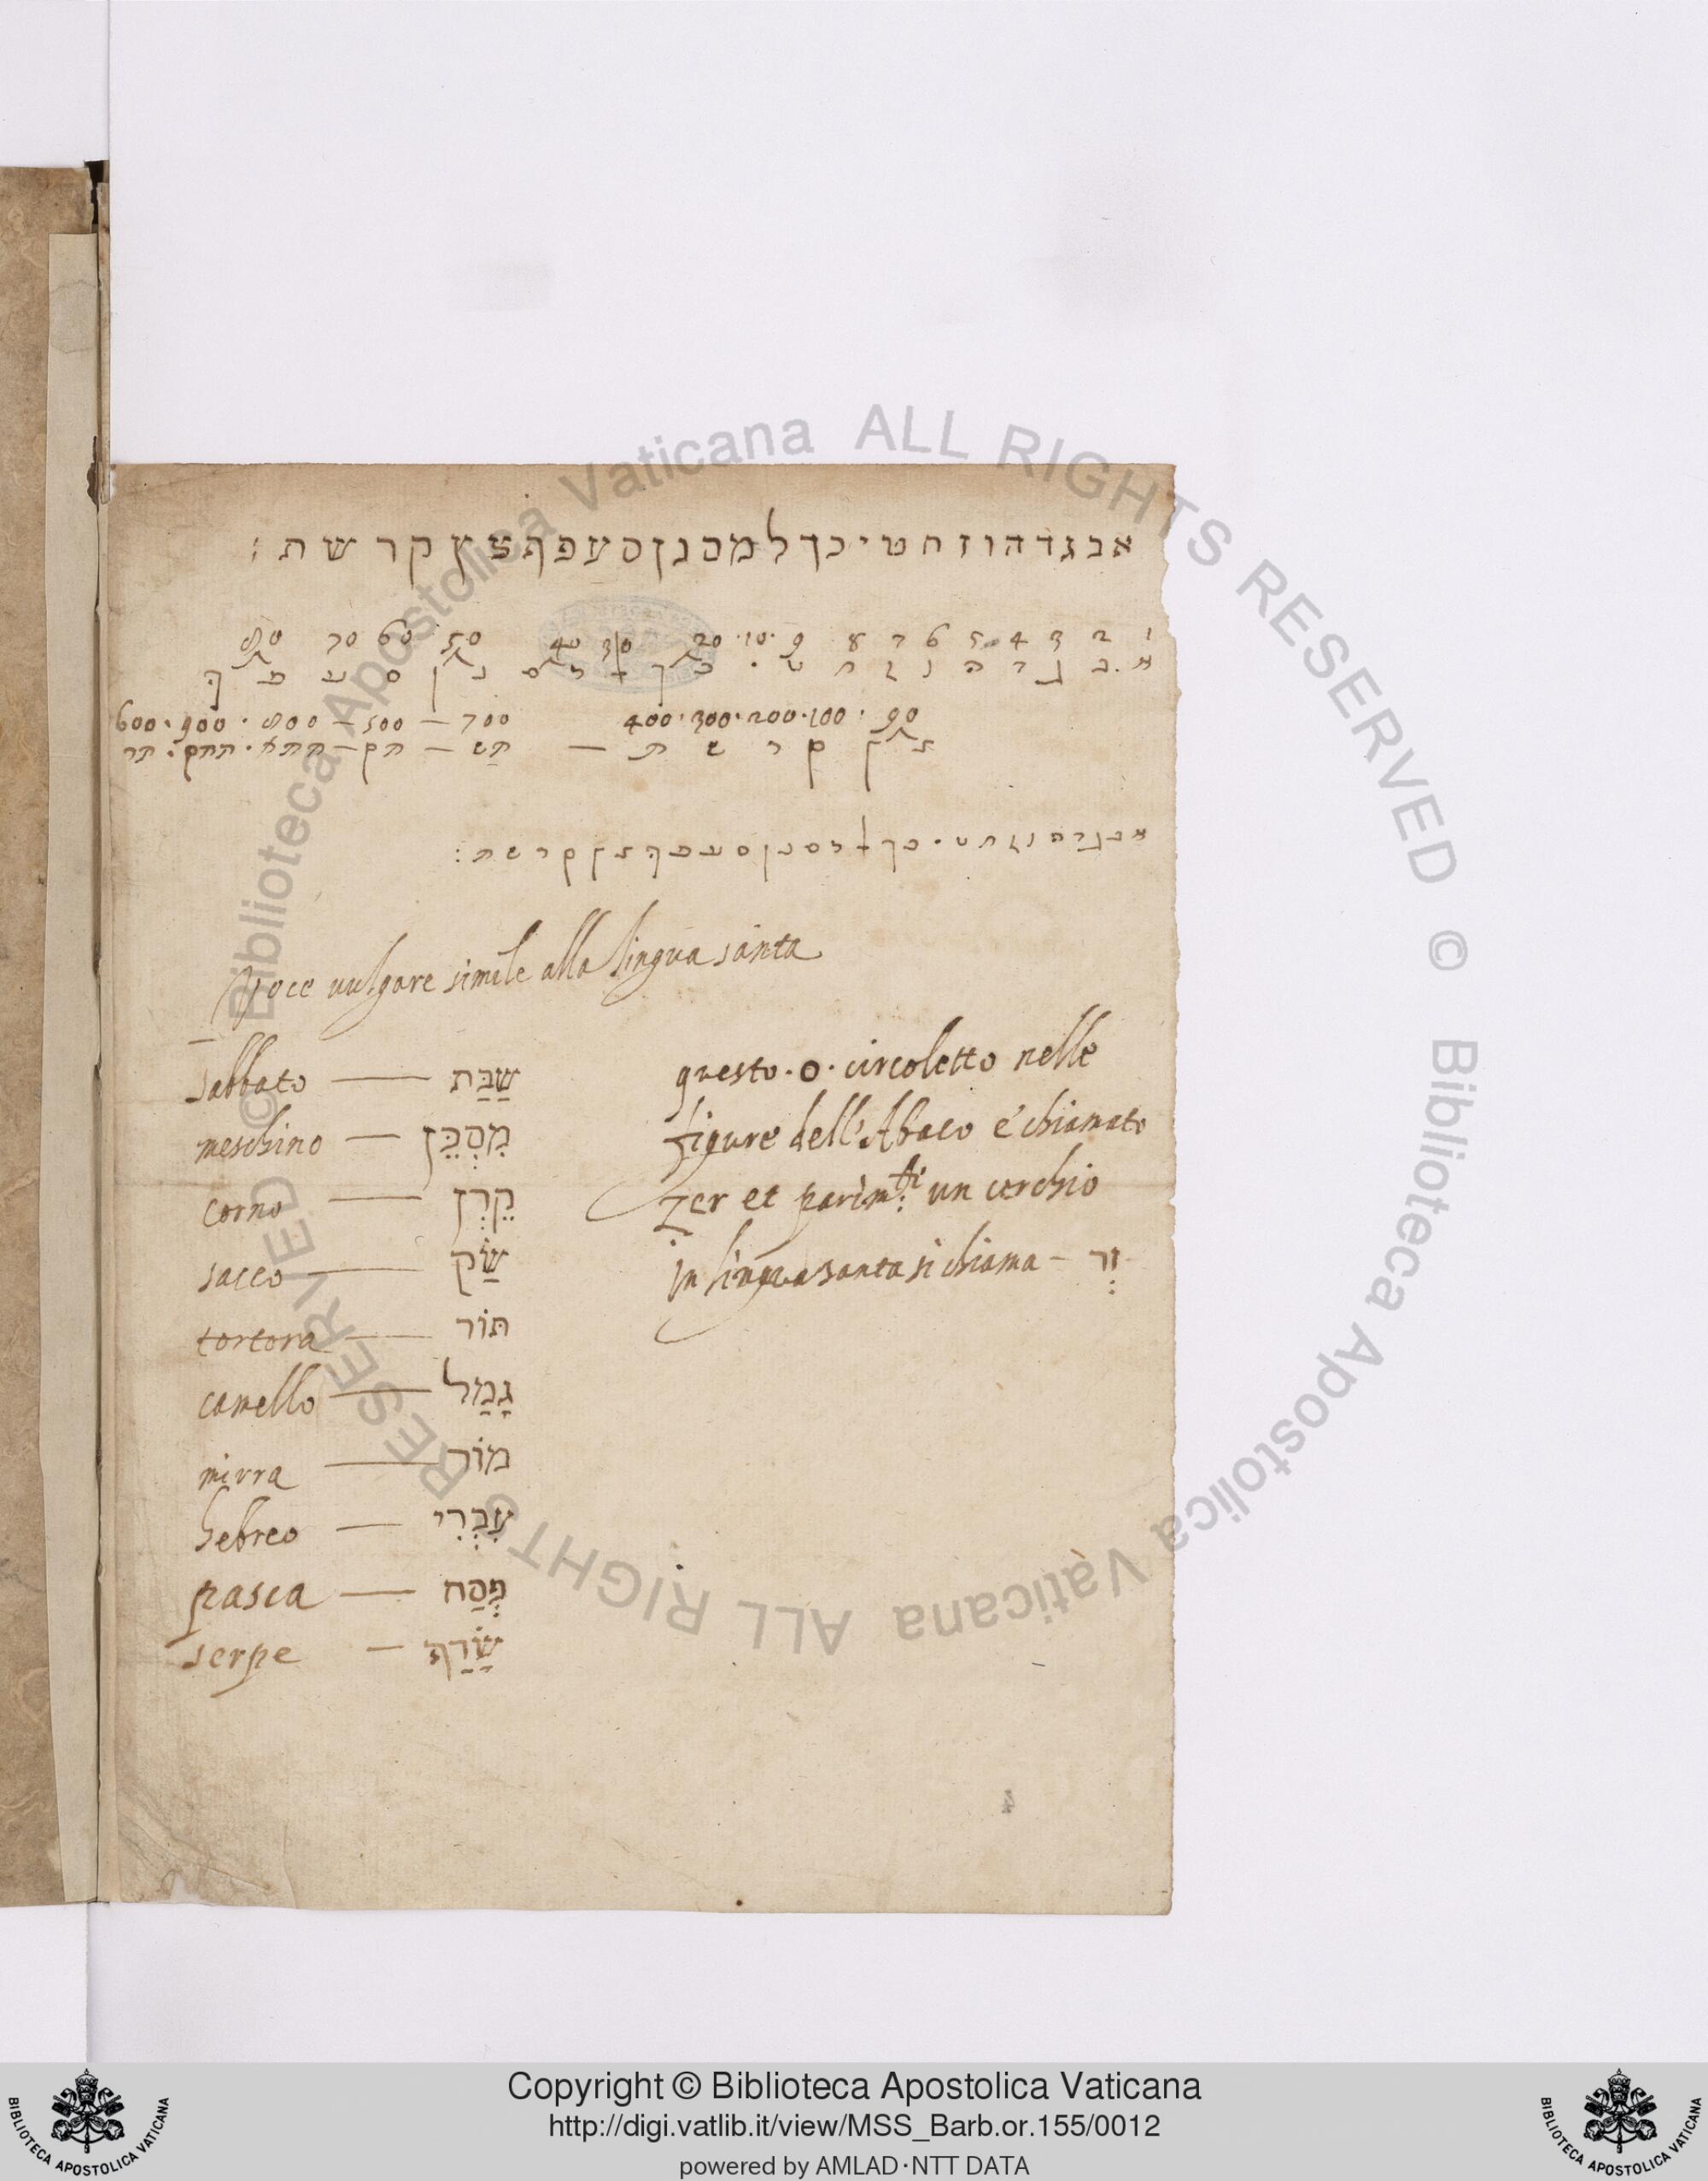 אבגדהוזחטיכךלמםנןסעפףצץקרשת:
1 2 3 4 5 6 7 8 9 ·10· 20 30 40 50 60 70 80
א ב ג ד ה ו ז ח ט י כך ל מם נן ס ע פ ף
90 · 100 · 200 · 300 · 400 700 — 500 — 800 · 900 · 600
צץ ק ר ש ת — תש — תק — תת · תתק · תר
אבגדהוזחטיכךלמםנןסעפףצץקרשת:
Voce vulgare simile alla lingua santa
Sabbato — שַבַּת
meschino — מִסְכֵּן
corno — קֶרֶן
sacco — שַׂק
tortora — תּוֹר
camello — גָמַל
mirra — מוֹר
hebreo — עִבְרִי
pasca — פֶּסַח
serpe — שָׂרַף
questo · o · circoletto nelle
figure dell'Abaco è chiamato
zer et parim.ti un cerchio
in lingua santa si chiama — זֵר
Copyright © Biblioteca Apostolica Vaticana
http://digi.vatlib.it/view/MSS_Barb.or.155/0012
powered by AMLAD·NTT DATA
BIBLIOTECA APOSTOLICA VATICANA
BIBLIOTECA APOSTOLICA VATICANA
© Biblioteca Apostolica Vaticana ALL RIGHTS RESERVED © Biblioteca Apostolica Vaticana ALL RIGHTS RESERVED